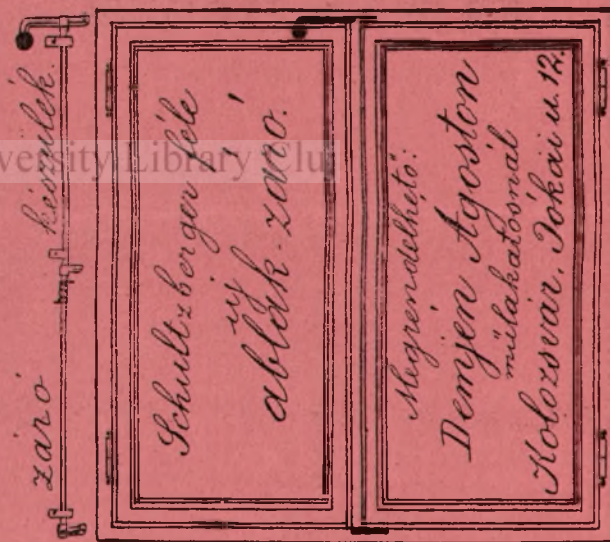 záró készülék.
Schultzberger féle
új
ablak-záró.
Megrendelhető:
Demjen Ágoston
műlakatosnál
Kolozsvár, Jókai u. 12.
versity Library Cluj